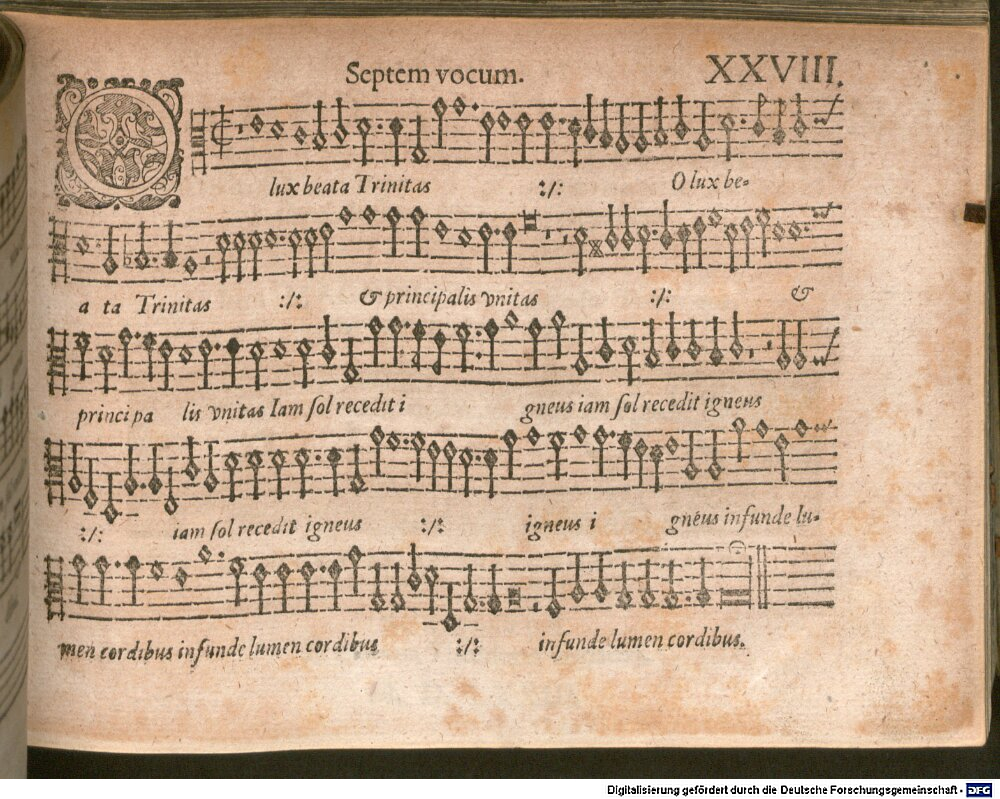 Septem vocum.
XXVIII.
O lux beata Trinitas :/: O lux be-
a ta Trinitas :/: & principalis vnitas :/: &
princi pa lis vnitas Iam sol recedit i gneus iam sol recedit igneus
:/: iam sol recedit igneus :/: igneus i gneus infunde lu-
men cordibus infunde lumen cordibus :/: infunde lumen cordibus.
Digitalisierung gefördert durch die Deutsche Forschungsgemeinschaft - DFG